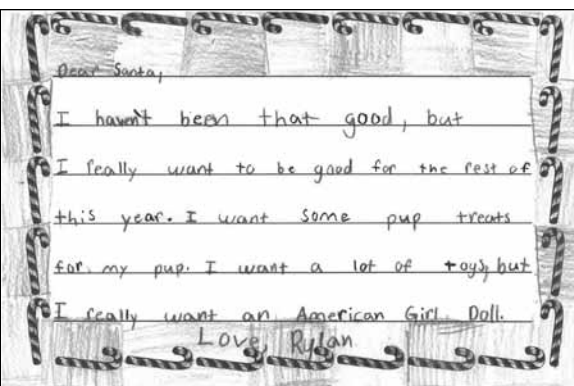 Dear Santa,
I haven't been that good, but
I really want to be good for the rest of
this year. I want some pup treats
for my pup. I want a lot of toys, but
I really want an American Girl Doll.
Love, Rylan